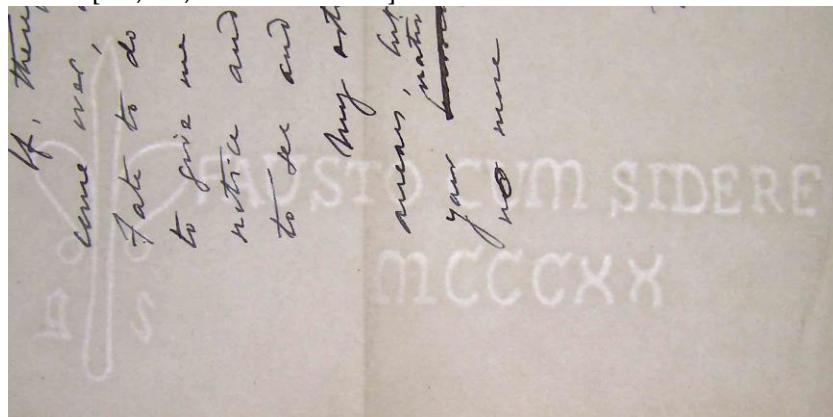 If, there
come over,
Fate to do
to give me
notice and
to see and
My
means,
your
no more
FAUSTO CUM SIDERE
MCCCXX